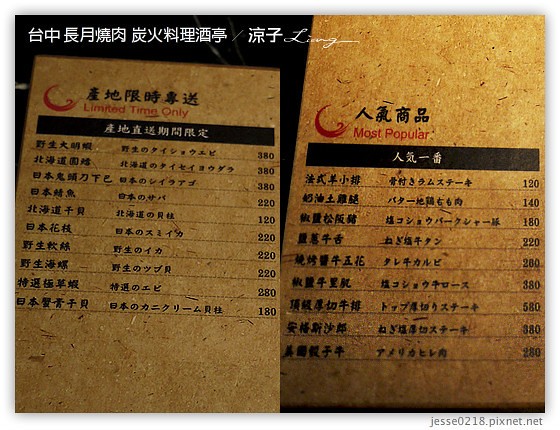 台中 長月燒肉 炭火料理酒亭 / 涼子 Liang
產地限時專送
Limited Time Only
產地直送期間限定
野生大明蝦 野生のタイショウエビ 380
北海道圓鱈 北海道のタイセイヨウダラ 380
日本鬼頭刀下巴 日本のシイラアゴ 380
日本鯖魚 日本のサバ 220
北海道干貝 北海道の貝柱 120
日本花枝 日本のスミイカ 220
野生軟絲 野生のイカ 220
野生海螺 野生のツブ貝 220
特選極草蝦 特選のエビ 280
日本蟹膏子貝 日本のカニクリーム貝柱 180
人氣商品
Most Popular
人気一番
法式羊小排 骨付きラムステーキ 120
奶油土雞腿 バター地鶏もも肉 140
椒鹽松阪豬 塩コショウバークシャー豚 180
鹽蔥牛舌 ねぎ塩牛タン 220
燒烤醬牛五花 タレ牛カルビ 260
椒鹽牛里肌 塩コショウ牛ロース 380
頂級厚切牛排 トップ厚切りステーキ 580
安格斯沙郎 ねぎ塩厚切ステーキ 380
美國骰子牛 アメリカヒレ肉 280
jesse0218.pixnet.net